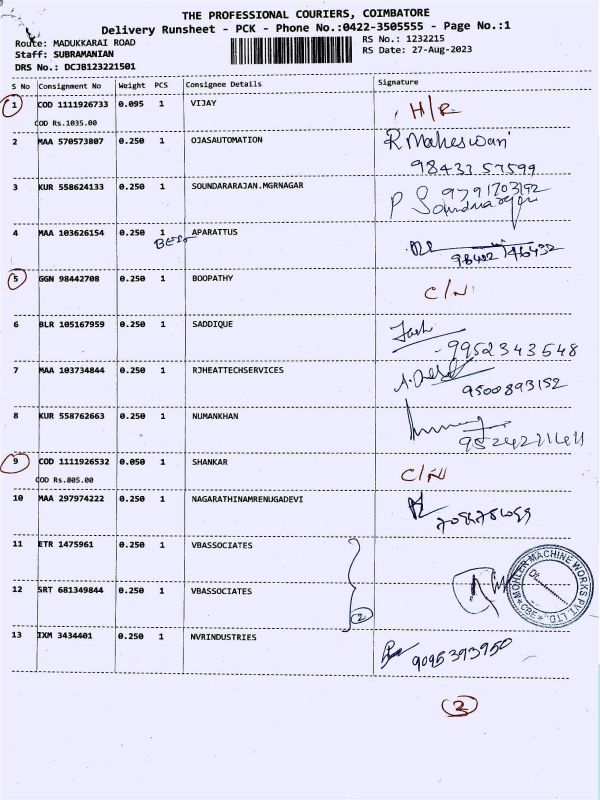 THE PROFESSIONAL COURIERS, COIMBATORE
Delivery Runsheet - PCK - Phone No.:0422-3505555 - Page No.:1
Route: MADUKKARAI ROAD
RS No.: 1232215
Staff: SUBRAMANIAN
RS Date: 27-Aug-2023
DRS No.: DCJB123221501
S No Consignment No Weight PCS Consignee Details Signature
1 COD 1111926733 0.095 1 VIJAY H/R
COD Rs.1035.00
2 MAA 570573807 0.250 1 OJASAUTOMATION R Maheswari
98433 57599
3 KUR 558624133 0.250 1 SOUNDARARAJAN.MGRNAGAR 9791703192
4 MAA 103626154 0.250 1 APARATTUS
98422 46432
5 GGN 98442708 0.250 1 BOOPATHY C/N
6 BLR 105167959 0.250 1 SADDIQUE
9952343548
7 MAA 103734844 0.250 1 RJHEATTECHSERVICES
9500893152
8 KUR 558762663 0.250 1 NUMANKHAN
9 COD 1111926532 0.050 1 SHANKAR C/N
COD Rs.805.00
10 MAA 297974222 0.250 1 NAGARATHINAMRENUGADEVI
11 ETR 1475961 0.250 1 VBASSOCIATES
12 SRT 681349844 0.250 1 VBASSOCIATES
2
MOHLER MACHINE WORKS PVT. LTD., CBE
13 IXM 3434401 0.250 1 NVRINDUSTRIES
9095393950
3